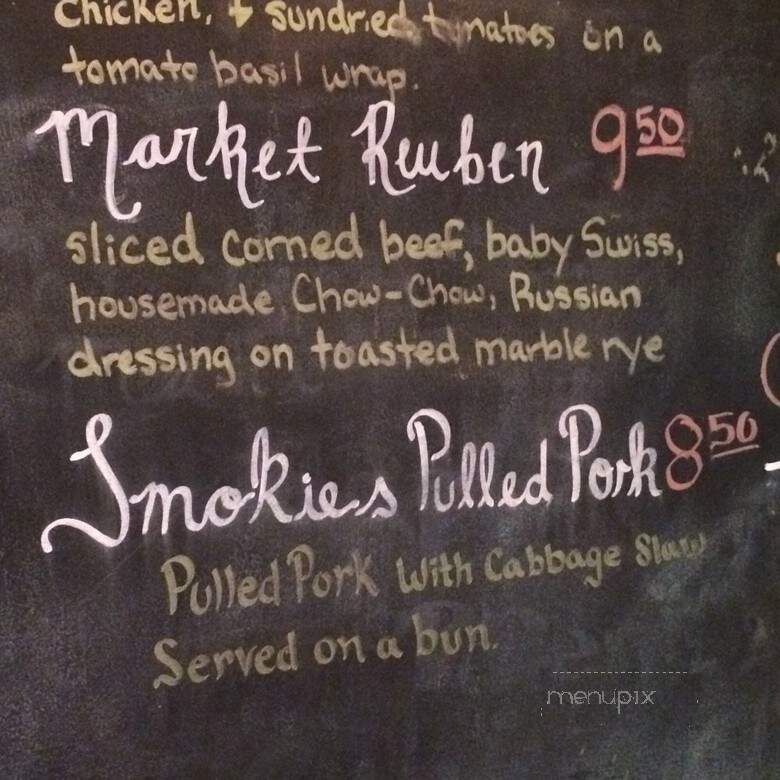 chicken, & sundried tomatoes on a
tomato basil wrap.
Market Reuben 9 50
sliced corned beef, baby Swiss,
housemade Chow-Chow, Russian
dressing on toasted marble rye
Smokies Pulled Pork 8 50
Pulled Pork with Cabbage Slaw
Served on a bun.
menupix